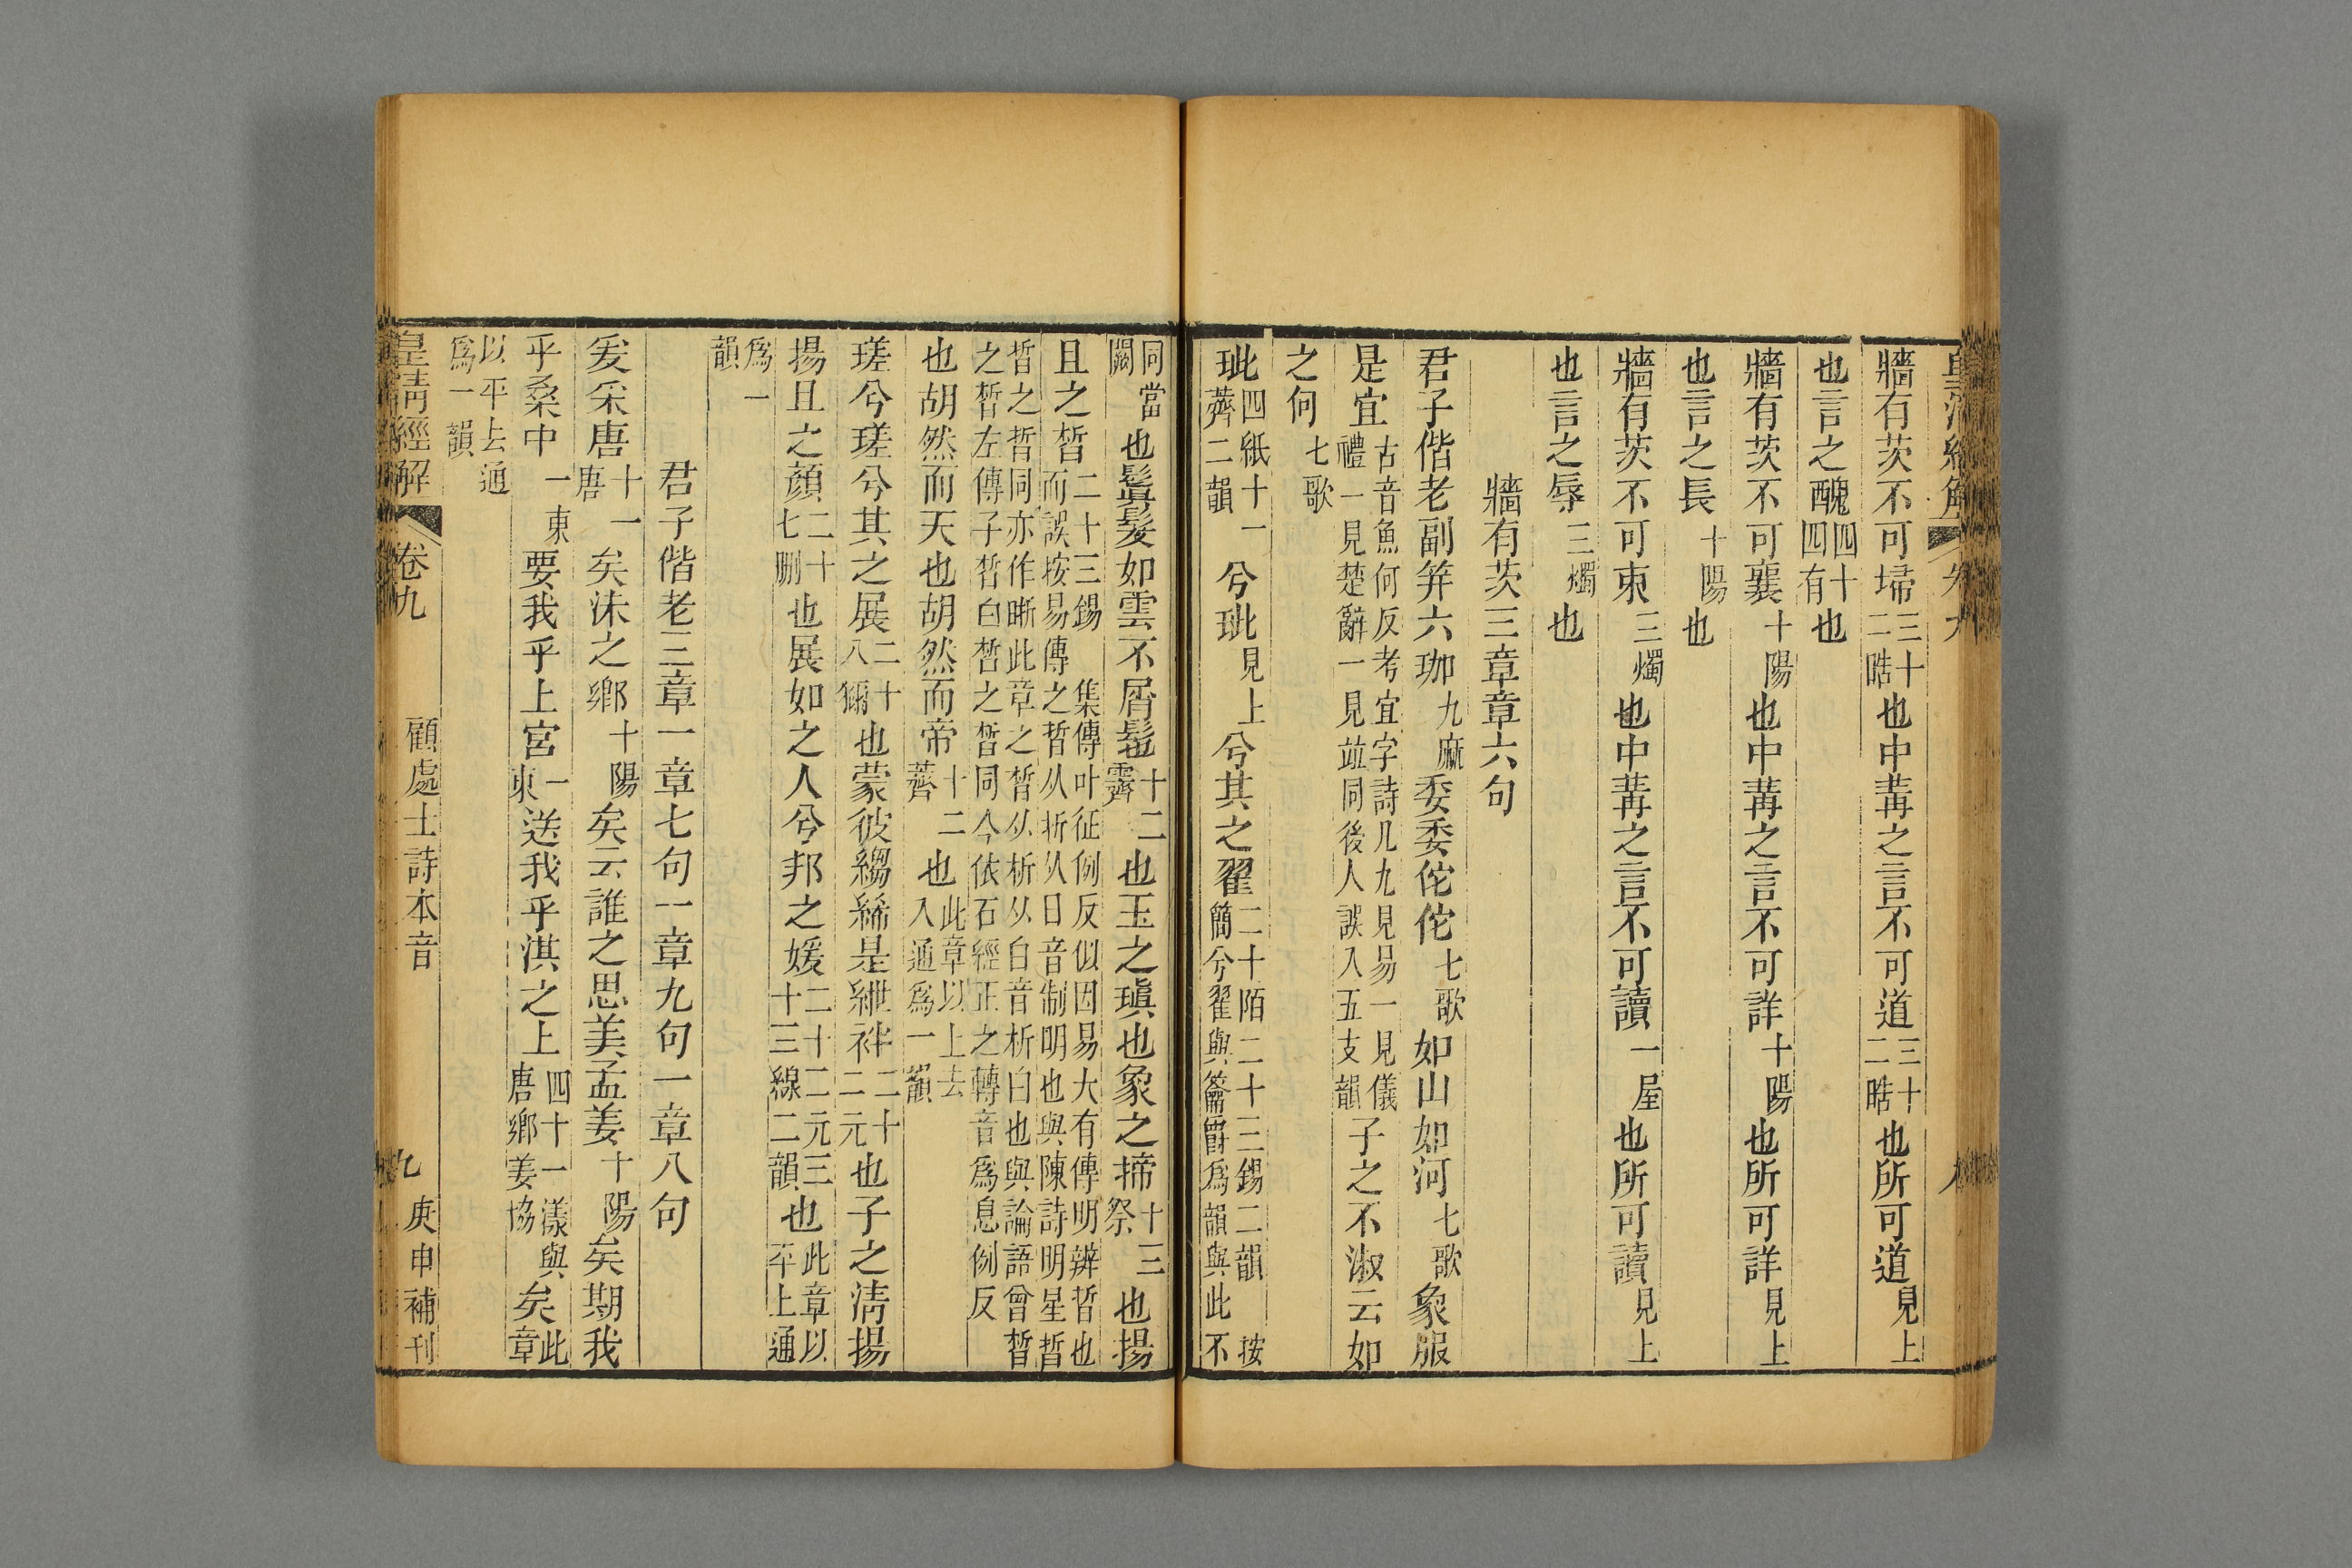 皇清經解 卷九 九
牆有茨不可埽三十二晧也中冓之言不可道三十二晧也所可道見上
也言之醜四十四有也
牆有茨不可襄十陽也中冓之言不可詳十陽也所可詳見上
也言之長十陽也
牆有茨不可束三燭也中冓之言不可讀一屋也所可讀見上
也言之辱三燭也
牆有茨三章章六句
君子偕老副笄六珈九麻委委佗佗七歌如山如河七歌象服
是宜古音魚何反考宜字詩凡九見易一見儀禮一見楚辭一見竝同後人誤入五支韻子之不淑云如
之何七歌
玼四紙十一薺二韻兮玼見上兮其之翟二十陌二十三錫二韻 按簡兮翟與籥爵爲韻與此不
同當闕也鬒髮如雲不屑髢十二霽也玉之瑱也象之揥十三祭也揚
且之晳二十三錫 集傳叶征例反似因易大有傳明辨晢也而誤按易傳之晢从折从日音制明也與陳詩明星晢
晢之晢同亦作晣此章之晳从析从白音析白也與論語曾晳
之晳左傳子晳白晳之晳同今依石經正之轉音爲息例反
也胡然而天也胡然而帝十二薺也此章以上去入通爲一韻
瑳兮瑳兮其之展二十八獮也蒙彼縐絺是紲袢二十二元也子之清揚
揚且之顏二十七刪也展如之人兮邦之媛二十二元三十三線二韻也此章以平上通
爲一韻
君子偕老三章一章七句一章九句一章八句
爰采唐十一唐矣沬之鄉十陽矣云誰之思美孟姜十陽矣期我
乎桑中一東要我乎上宮一東送我乎淇之上四十一漾與唐鄉姜協矣此章
以平去通爲一韻
皇清經解 卷九 顧處士詩本音 九 庚申補刊